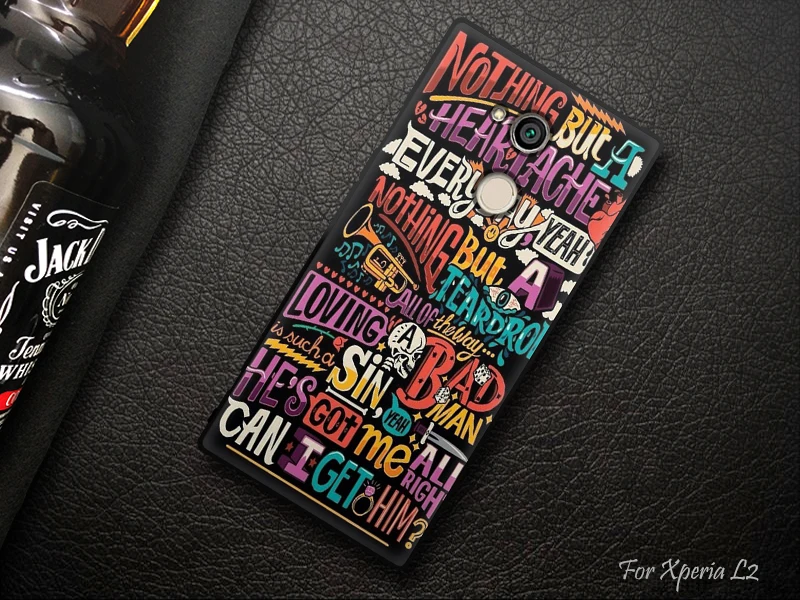 NOTHING BUT A
HEARTACHE
EVERYDAY, YEAH!
NOTHING BUT A
TEARDROP
ALL OF the way...
LOVING A BAD
is such a SIN, MAN
YEAH
HE'S GOT me ALL
RIGHT
CAN I GET HIM?
VISIT US A
JACK
Ten
WH
For Xperia L2